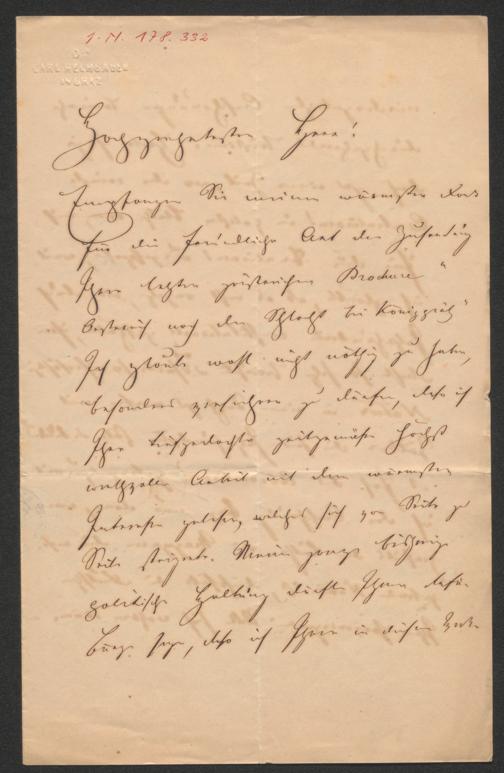 I. N. 178.332
Dr
CARL RECHBAUER
IN GRAZ
Hochverehrtester Herr!
Empfangen Sie meinen wärmsten Dank
für die freundliche Art der Zusendung
Ihrer letzten Brochure „
Österreich nach der Schlacht bei Königgrätz“
Ich glaube wohl nicht nöthig zu haben,
besonders versichern zu dürfen, daß ich
Ihre tiefgedachte zeitgemäße höchst
werthvolle Arbeit mit dem wärmsten
Interesse gelesen, welches sich von Seite zu
Seite steigerte. Meine ganze bisherige
politische Haltung dürfte Ihnen dafür
Bürge sein, daß ich Ihnen in diesem